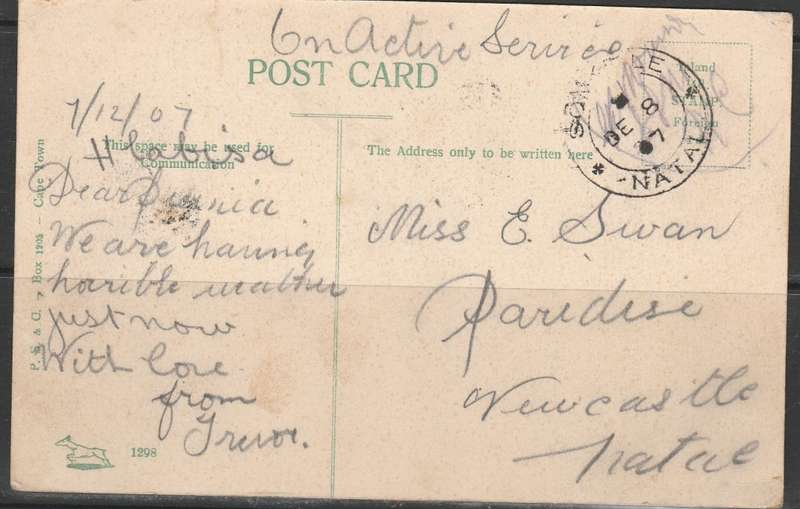 On Active Service
POST CARD
Inland
STAMP
Foreign
DE 8
7
NATAL
7/12/07
This space may be used for
Communication
Hlabisa
The Address only to be written here
Dear
We are having
horrible weather
just now
With love
from
Trevor.
Miss E. Swan
Paridise
Newcastle
Natal
P. S. & C. Box 1205 – Cape Town
1298